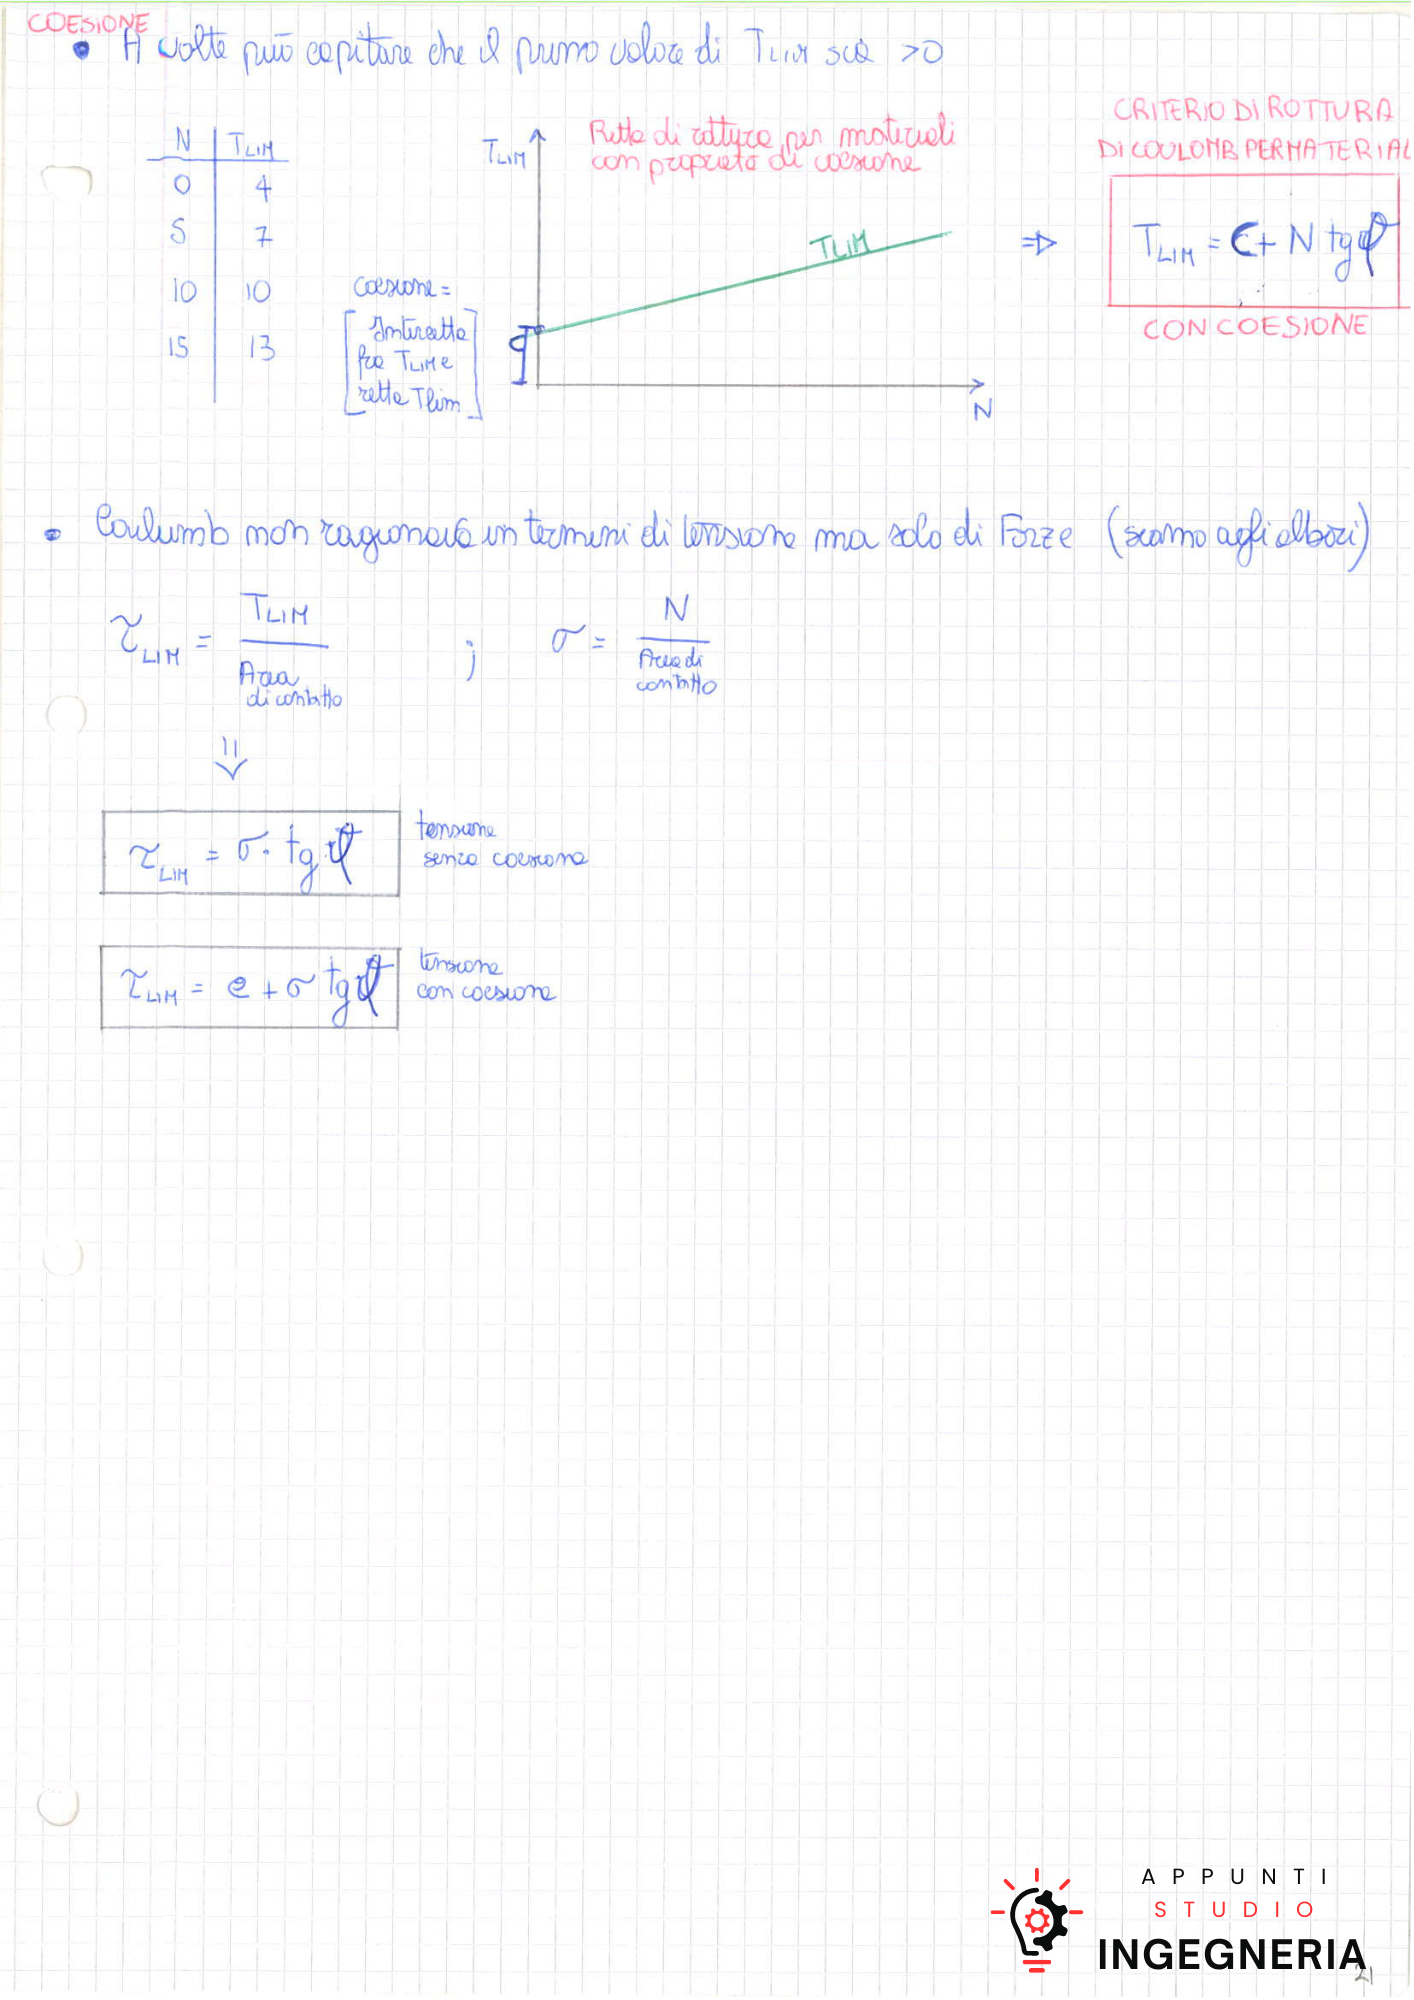 COESIONE
• A volte può capitare che il primo valore di TLIM sia >0
N TLIM
0 4
5 7
10 10
15 13
Coesione =
[Intercetta
fra TLIM e
retta Tlim]
TLIM
Retta di rottura per materiali
con proprietà di coesione
TLIM
N
⇒
CRITERIO DI ROTTURA
DI COULOMB PER MATERIAL
TLIM = C + N tg φ
CON COESIONE
• Coulumb non ragionava in termini di tensione ma solo di Forze (siamo agli albori)
τLIM = TLIM / Area di contatto ; σ = N / Area di contatto
⇓
τLIM = σ · tg φ
tensione
senza coesione
τLIM = c + σ tg φ
tensione
con coesione
APPUNTI
STUDIO
INGEGNERIA
21